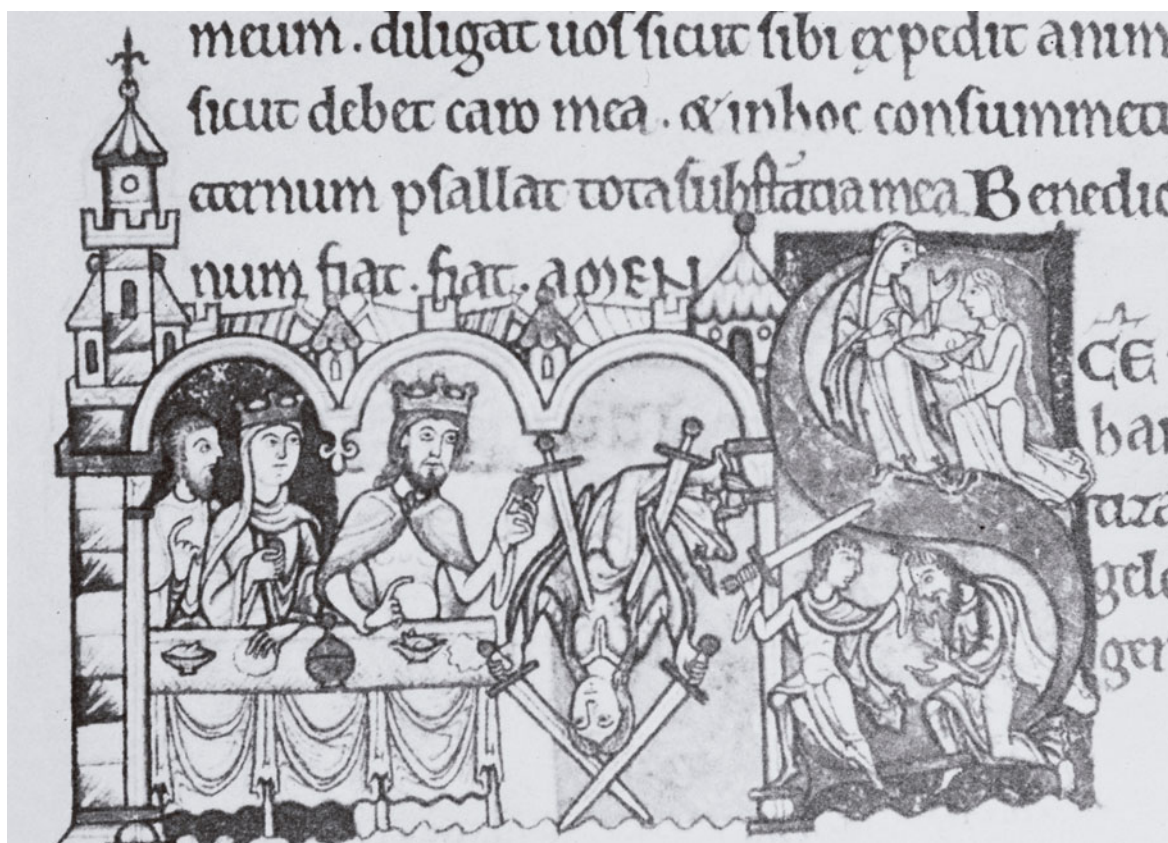 meum . diligat uoſ ſicut ſibi expedit anim
ſicut debet caro mea . & in hoc conſummetu
eternum pſallat tota ſubſtātia mea Benedic
num fiat . fiat . AMEN
CE